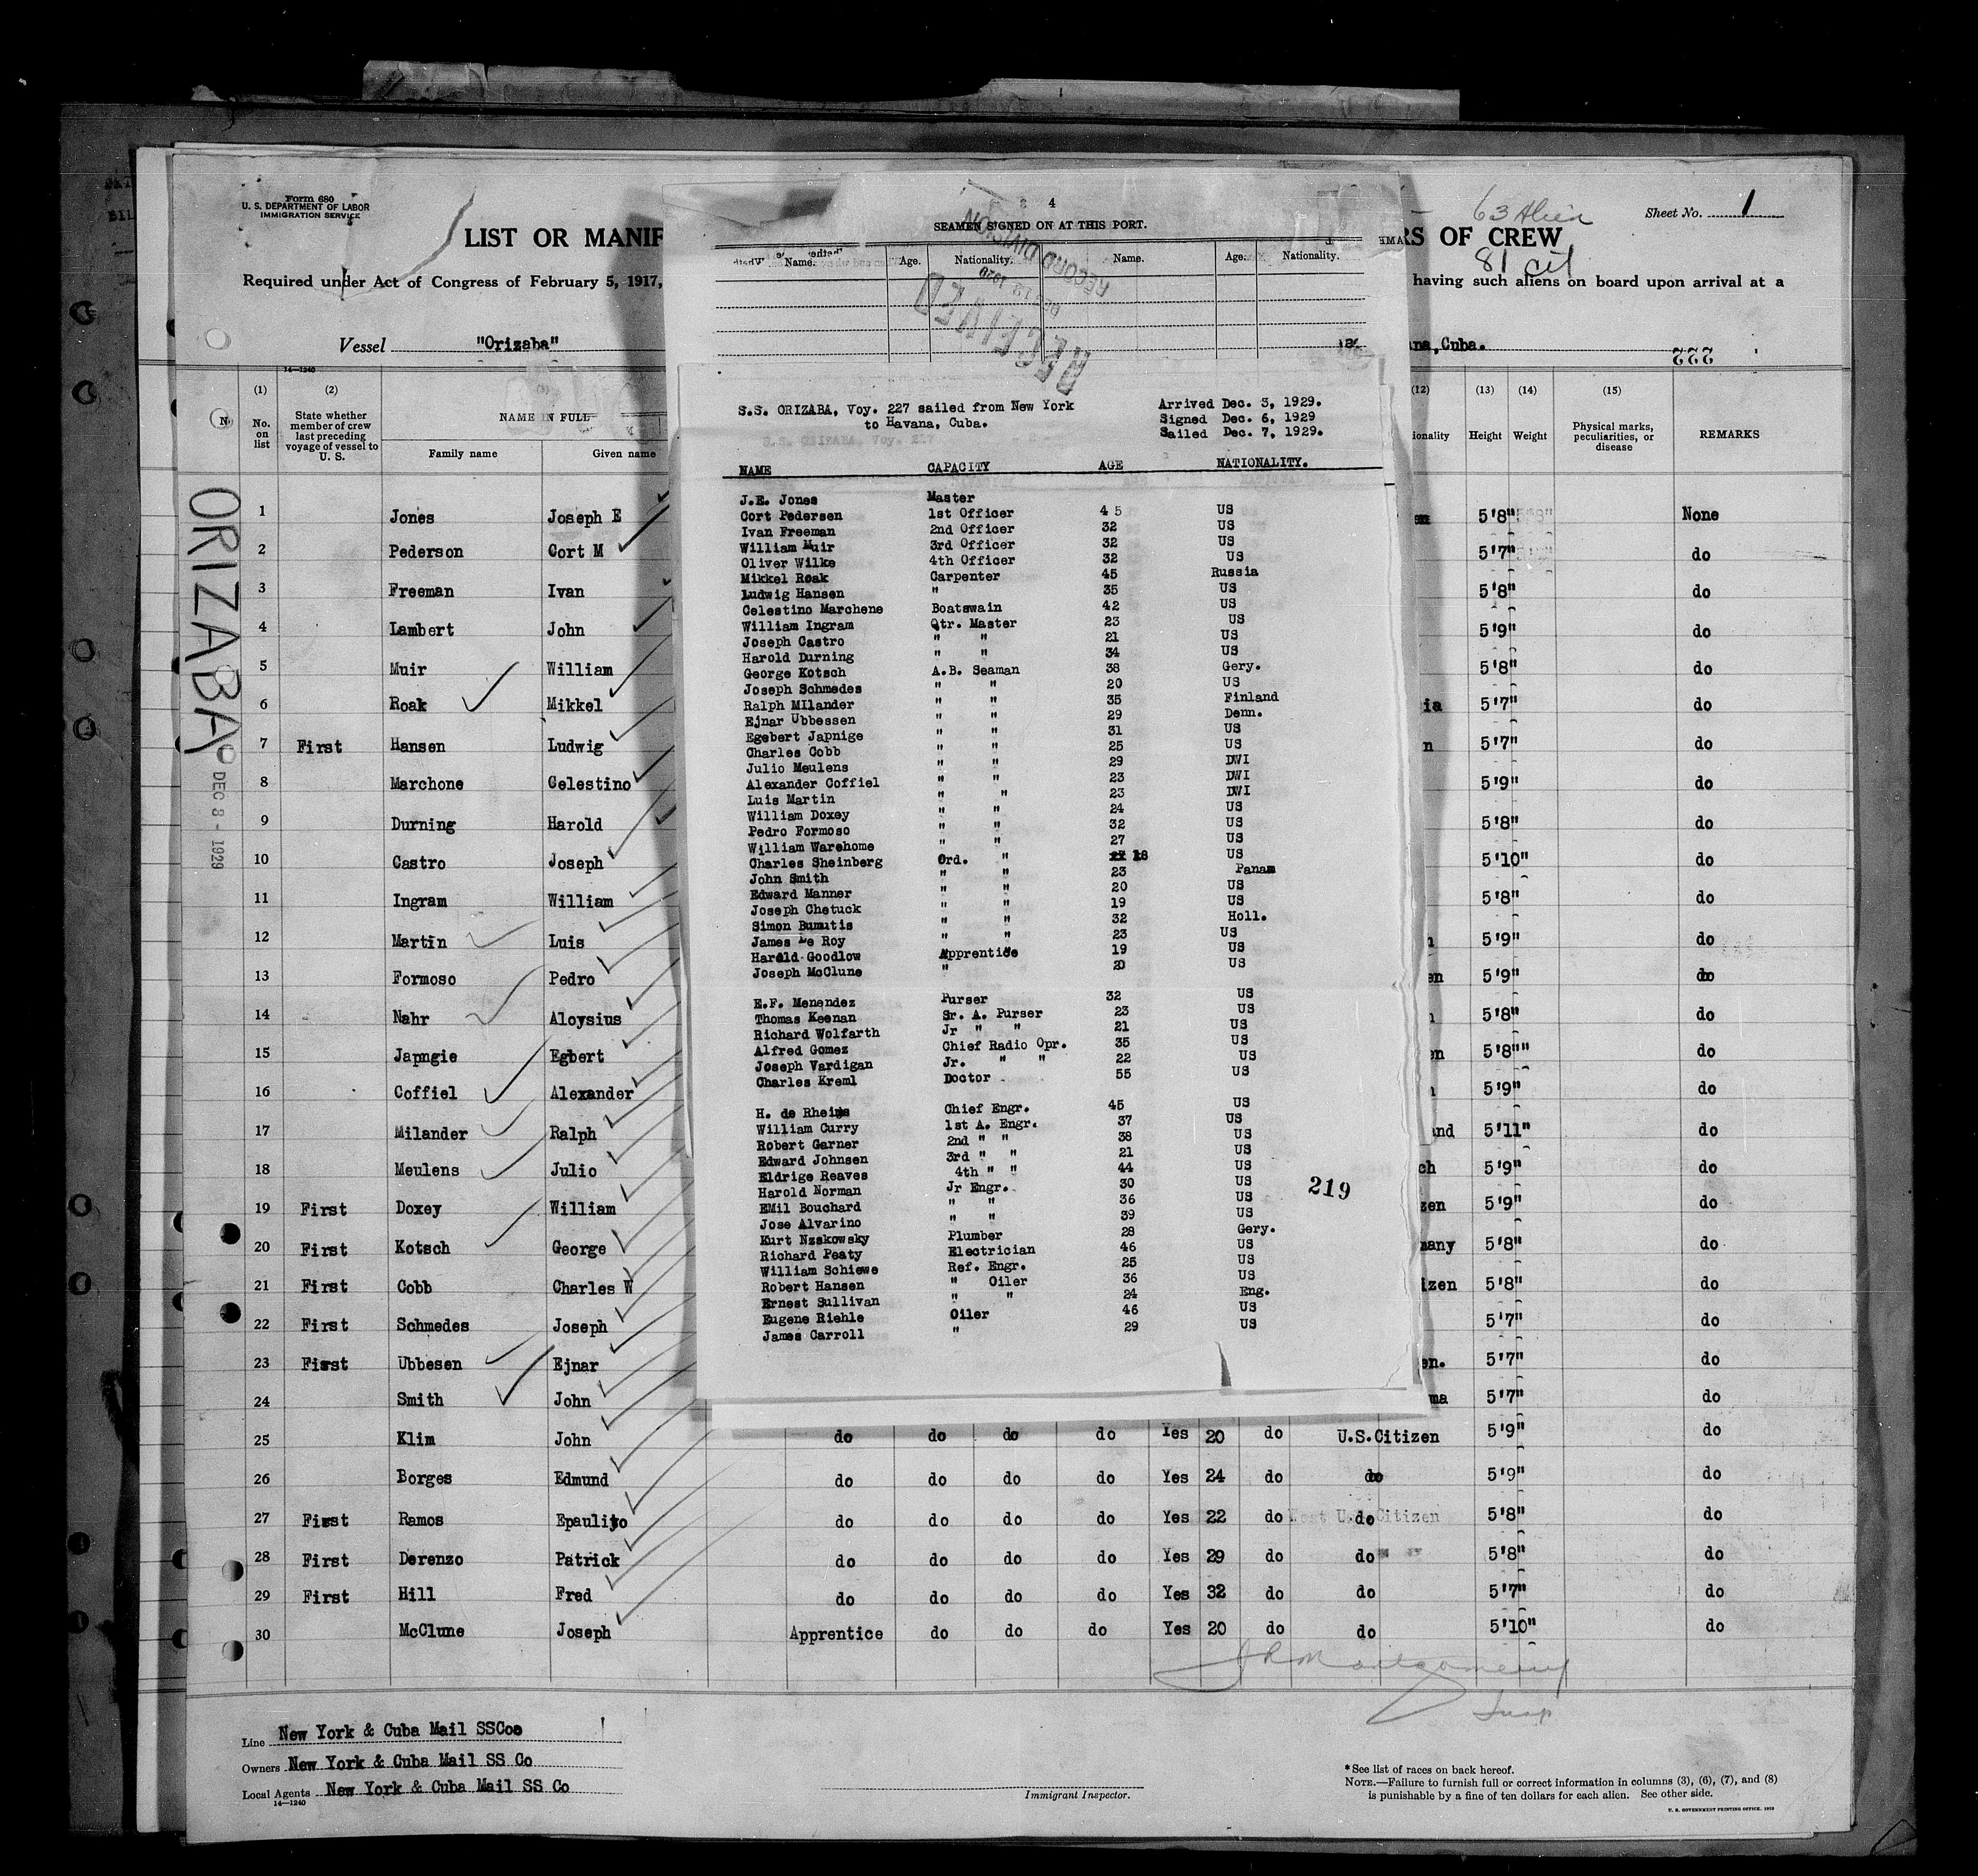 Form 680
U. S. DEPARTMENT OF LABOR
IMMIGRATION SERVICE
63 Alien
Sheet No. 1
LIST OR MANIF
RS OF CREW
81 cit
Required under Act of Congress of February 5, 1917,
having such aliens on board upon arrival at a
Vessel "Orizaba"
na, Cuba.
222
14—1240
(1) (2) (12) (13) (14) (15)
No. on list
State whether member of crew last preceding voyage of vessel to U. S.
NAME IN FULL
Family name Given name
ionality Height Weight
Physical marks, peculiarities, or disease
REMARKS
ORIZABA
DEC 8 - 1929
1 Jones Joseph E 5'8" None
2 Pederson Cort M 5'7" do
3 Freeman Ivan 5'8" do
4 Lambert John 5'9" do
5 Muir William 5'8" do
6 Roak Mikkel ia 5'7" do
7 First Hansen Ludwig n 5'7" do
8 Marchone Celestino 5'9" do
9 Durning Harold 5'8" do
10 Castro Joseph 5'10" do
11 Ingram William 5'8" do
12 Martin Luis 5'9" do
13 Formoso Pedro en 5'9" do
14 Nahr Aloysius 5'8" do
15 Japngie Egbert en 5'8"" do
16 Coffiel Alexander 5'9" do
17 Milander Ralph and 5'11" do
18 Meulens Julio ch 5'9" do
19 First Doxey William zen 5'9" do
20 First Kotsch George many 5'8" do
21 First Cobb Charles W izen 5'8" do
22 First Schmedes Joseph 5'7" do
23 First Ubbesen Ejnar en. 5'7" do
24 Smith John ma 5'7" do
25 Klim John do do do do Yes 20 do U.S.Citizen 5'9" do
26 Borges Edmund do do do do Yes 24 do do 5'9" do
27 First Ramos Epaulito do do do do Yes 22 do do 5'8" do
28 First Derenzo Patrick do do do do Yes 29 do do 5'8" do
29 First Hill Fred do do do do Yes 32 do do 5'7" do
30 McClune Joseph Apprentice do do do Yes 20 do do 5'10" do
J R Montgomery
Insp
Line New York & Cuba Mail SSCoe
Owners New York & Cuba Mail SS Co
Local Agents New York & Cuba Mail SS Co
14—1240
Immigrant Inspector.
*See list of races on back hereof.
NOTE.—Failure to furnish full or correct information in columns (3), (6), (7), and (8)
is punishable by a fine of ten dollars for each alien. See other side.
U. S. GOVERNMENT PRINTING OFFICE. 1929
4
SEAMEN SIGNED ON AT THIS PORT.
Name. Age. Nationality. Name. Age. Nationality.
RECEIVED
RECORD DIVISION
S.S. ORIZABA, Voy. 227 sailed from New York
to Havana, Cuba.
Arrived Dec. 3, 1929.
Signed Dec. 6, 1929
Sailed Dec. 7, 1929.
NAME CAPACITY AGE NATIONALITY.
J.E. Jones Master
Cort Pedersen 1st Officer 45 US
Ivan Freeman 2nd Officer 32 US
William Muir 3rd Officer 32 US
Oliver Wilke 4th Officer 32 US
Mikkel Roak Carpenter 45 Russia
Ludwig Hansen " 35 US
Celestino Marchene Boatswain 42 US
William Ingram Qtr. Master 23 US
Joseph Castro " " 21 US
Harold Durning " " 34 US
George Kotsch A.B. Seaman 38 Gery.
Joseph Schmedes " " 20 US
Ralph MIlander " " 35 Finland
Ejnar Ubbessen " " 29 Denn.
Egebert Japnige " " 31 US
Charles Cobb " " 25 US
Julio Meulens " " 29 DWI
Alexander Coffiel " " 23 DWI
Luis Martin " " 23 DWI
William Doxey " " 24 US
Pedro Formoso " " 32 US
William Warehome " " 27 US
Charles Sheinberg Ord. " 18 US
John Smith " " 23 Panam
Edward Manner " " 20 US
Joseph Chetuck " " 19 US
Simon Bumutis " " 32 Holl.
James De Roy " " 23 US
Harold Goodlow Apprentice 19 US
Joseph McClune " 20 US
E.F. Menendez Purser 32 US
Thomas Keenan Sr. A. Purser 23 US
Richard Wolfarth Jr " " 21 US
Alfred Gomez Chief Radio Opr. 35 US
Joseph Vardigan Jr. " " 22 US
Charles Kreml Doctor 55 US
H. de Rheims Chief Engr. 45 US
William Curry 1st A. Engr. 37 US
Robert Garner 2nd " " 38 US
Edward Johnsen 3rd " " 21 US
Eldrige Reaves 4th " " 44 US
Harold Norman Jr Engr. 30 US
EMil Bouchard " " 36 US
Jose Alvarino " " 39 US
Kurt Nzskowsky Plumber 28 Gery.
Richard Peaty Electrician 46 US
William Schiewe Ref. Engr. 25 US
Robert Hansen " Oiler 36 US
Ernest Sullivan " " 24 Eng.
Eugene Riehle Oiler 46 US
James Carroll " 29 US
219